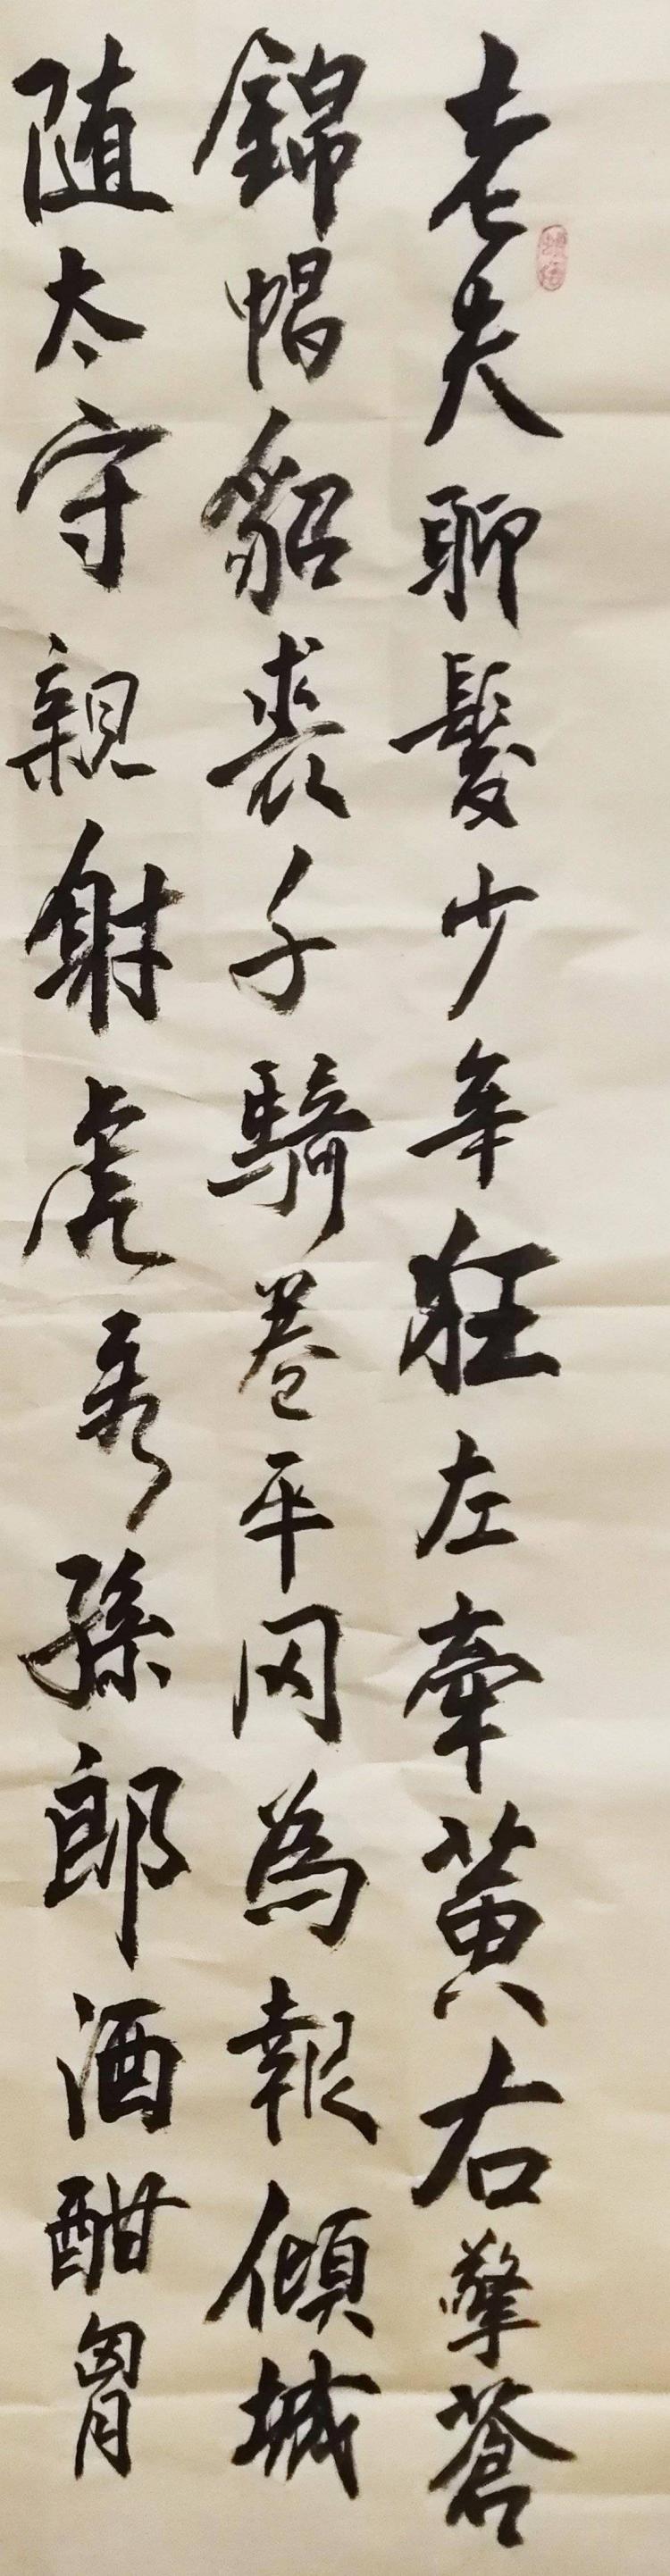 老夫聊髮少年狂左牽黃右擎蒼
錦帽貂裘千騎卷平冈為報傾城
随太守親射虎看孫郎酒酣胷